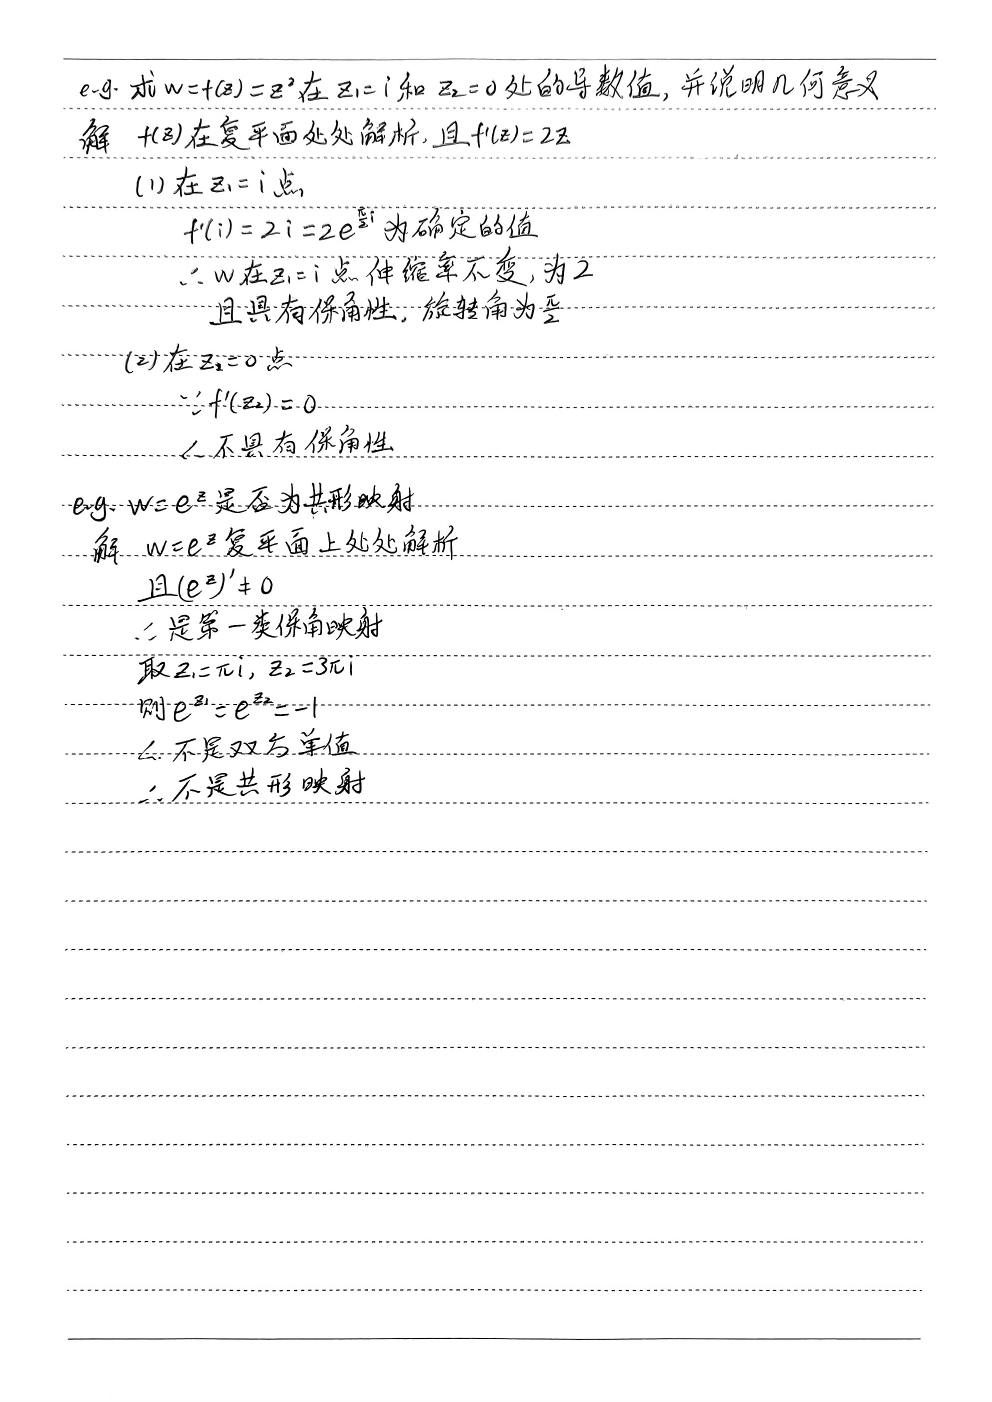 e.g. 求 w=f(z)=z²在 z₁=i 和 z₂=0 处的导数值,并说明几何意义
解 f(z)在复平面处处解析,且f'(z)=2z
(1)在z₁=i点,
f'(i)=2i=2e^{\frac{π}{2}i}为确定的值
∴w在z₁=i点伸缩率不变,为2
且具有保角性,旋转角为\frac{π}{2}
(2)在z₂=0点
∵f'(z₂)=0
∴不具有保角性
e.g. w=e^z是否为共形映射
解 w=e^z复平面上处处解析
且(e^z)'≠0
∴是第一类保角映射
取z₁=πi, z₂=3πi
则e^{z₁}=e^{z₂}=-1
∴不是双方单值
∴不是共形映射